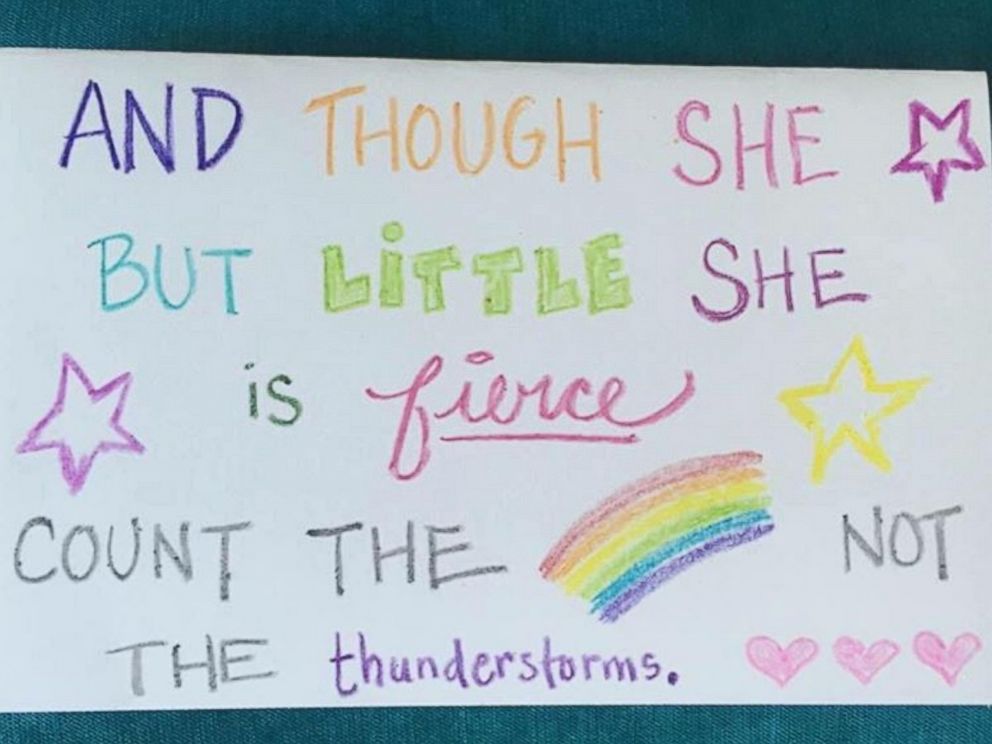 AND THOUGH SHE
BUT LiTTLE SHE
is fierce
COUNT THE NOT
THE thunderstorms.